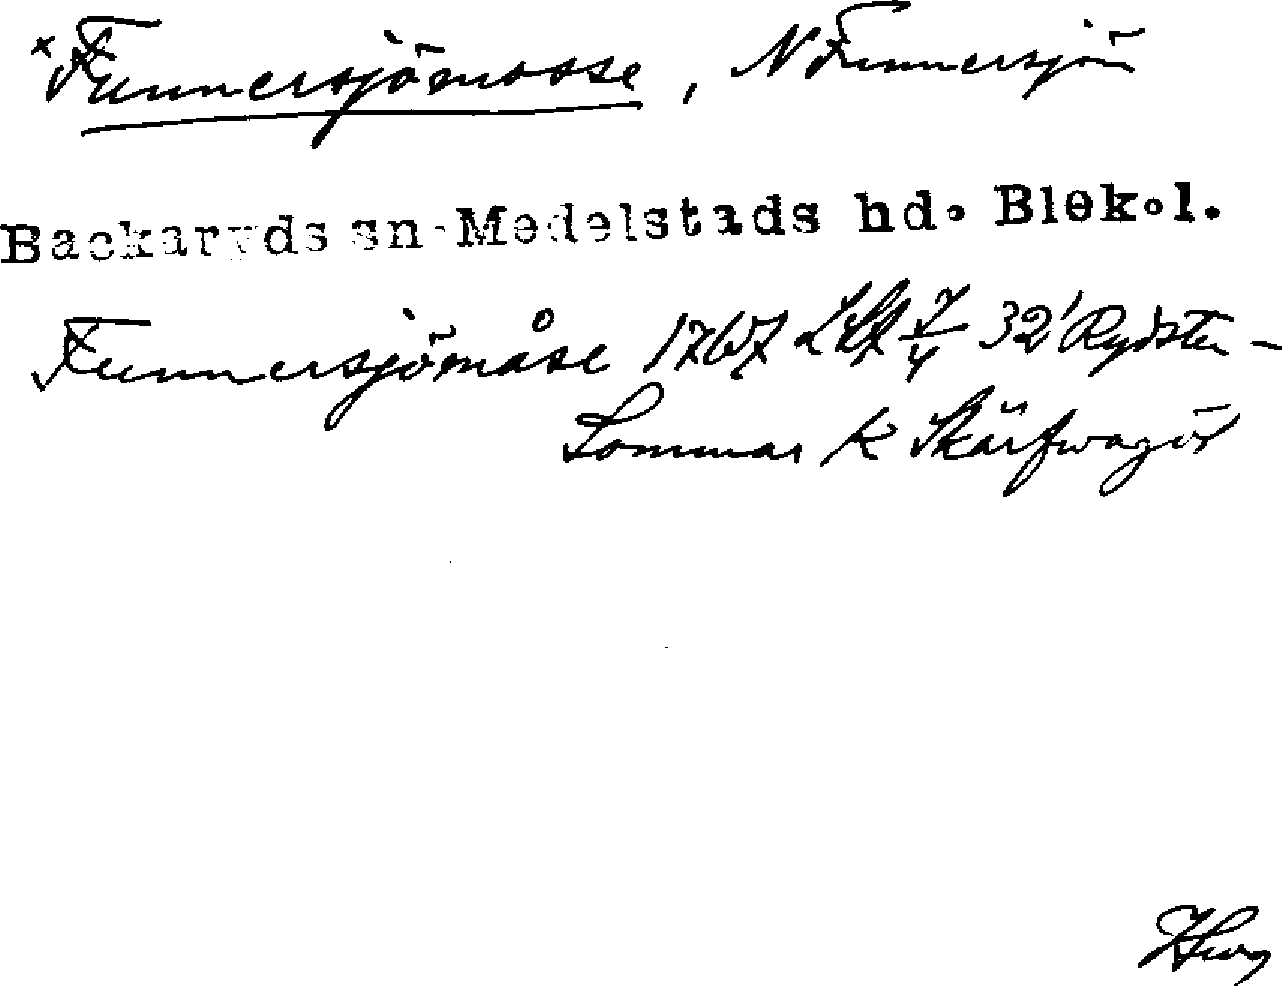 *Funnersjömosse, N Funnersjön
Backaryds sn. Medelstads hd. Blek.l.
Funnersjömåse 1767 LSA 32 Rydsten-
Sommar K Skärfwagöl